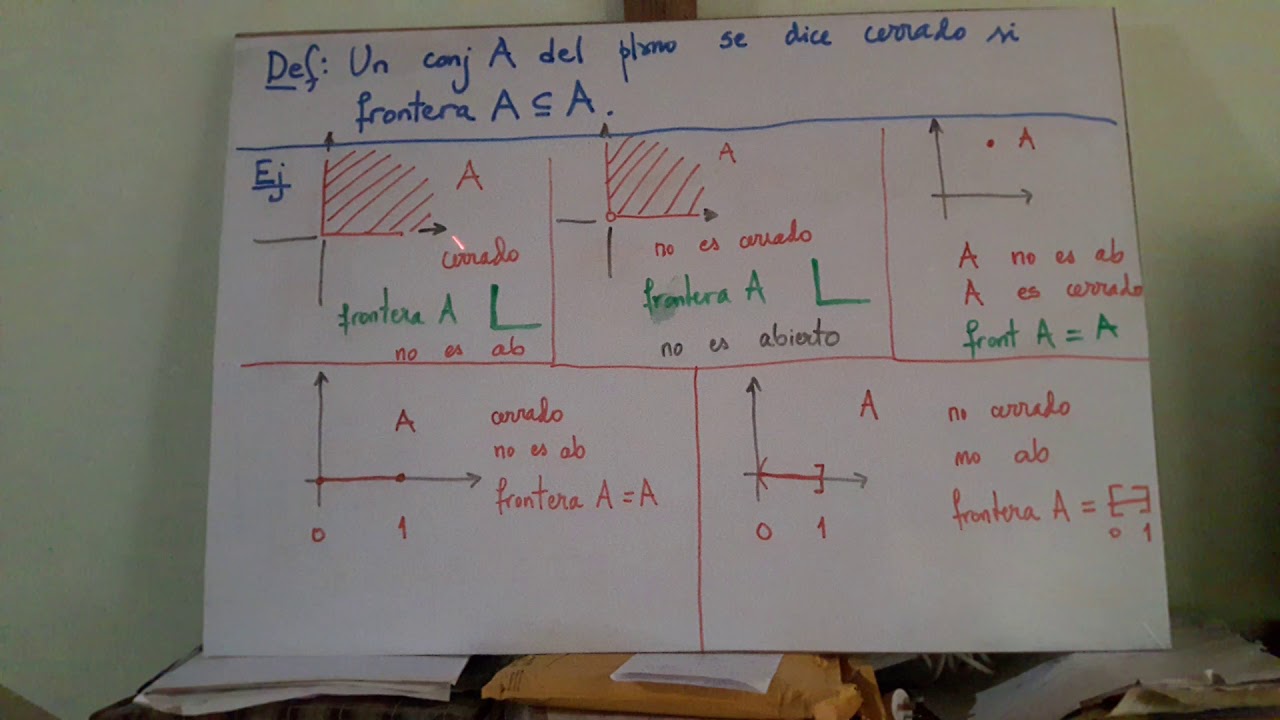 Def: Un conj A del plano se dice cerrado si
frontera A ⊆ A.
Ej
A
cerrado
frontera A
no es ab
A
no es cerrado
frontera A
no es abierto
A
A no es ab
A es cerrado
front A = A
A
cerrado
no es ab
frontera A = A
0 1
A
no cerrado
no ab
frontera A = [ ]
0 1
0 1